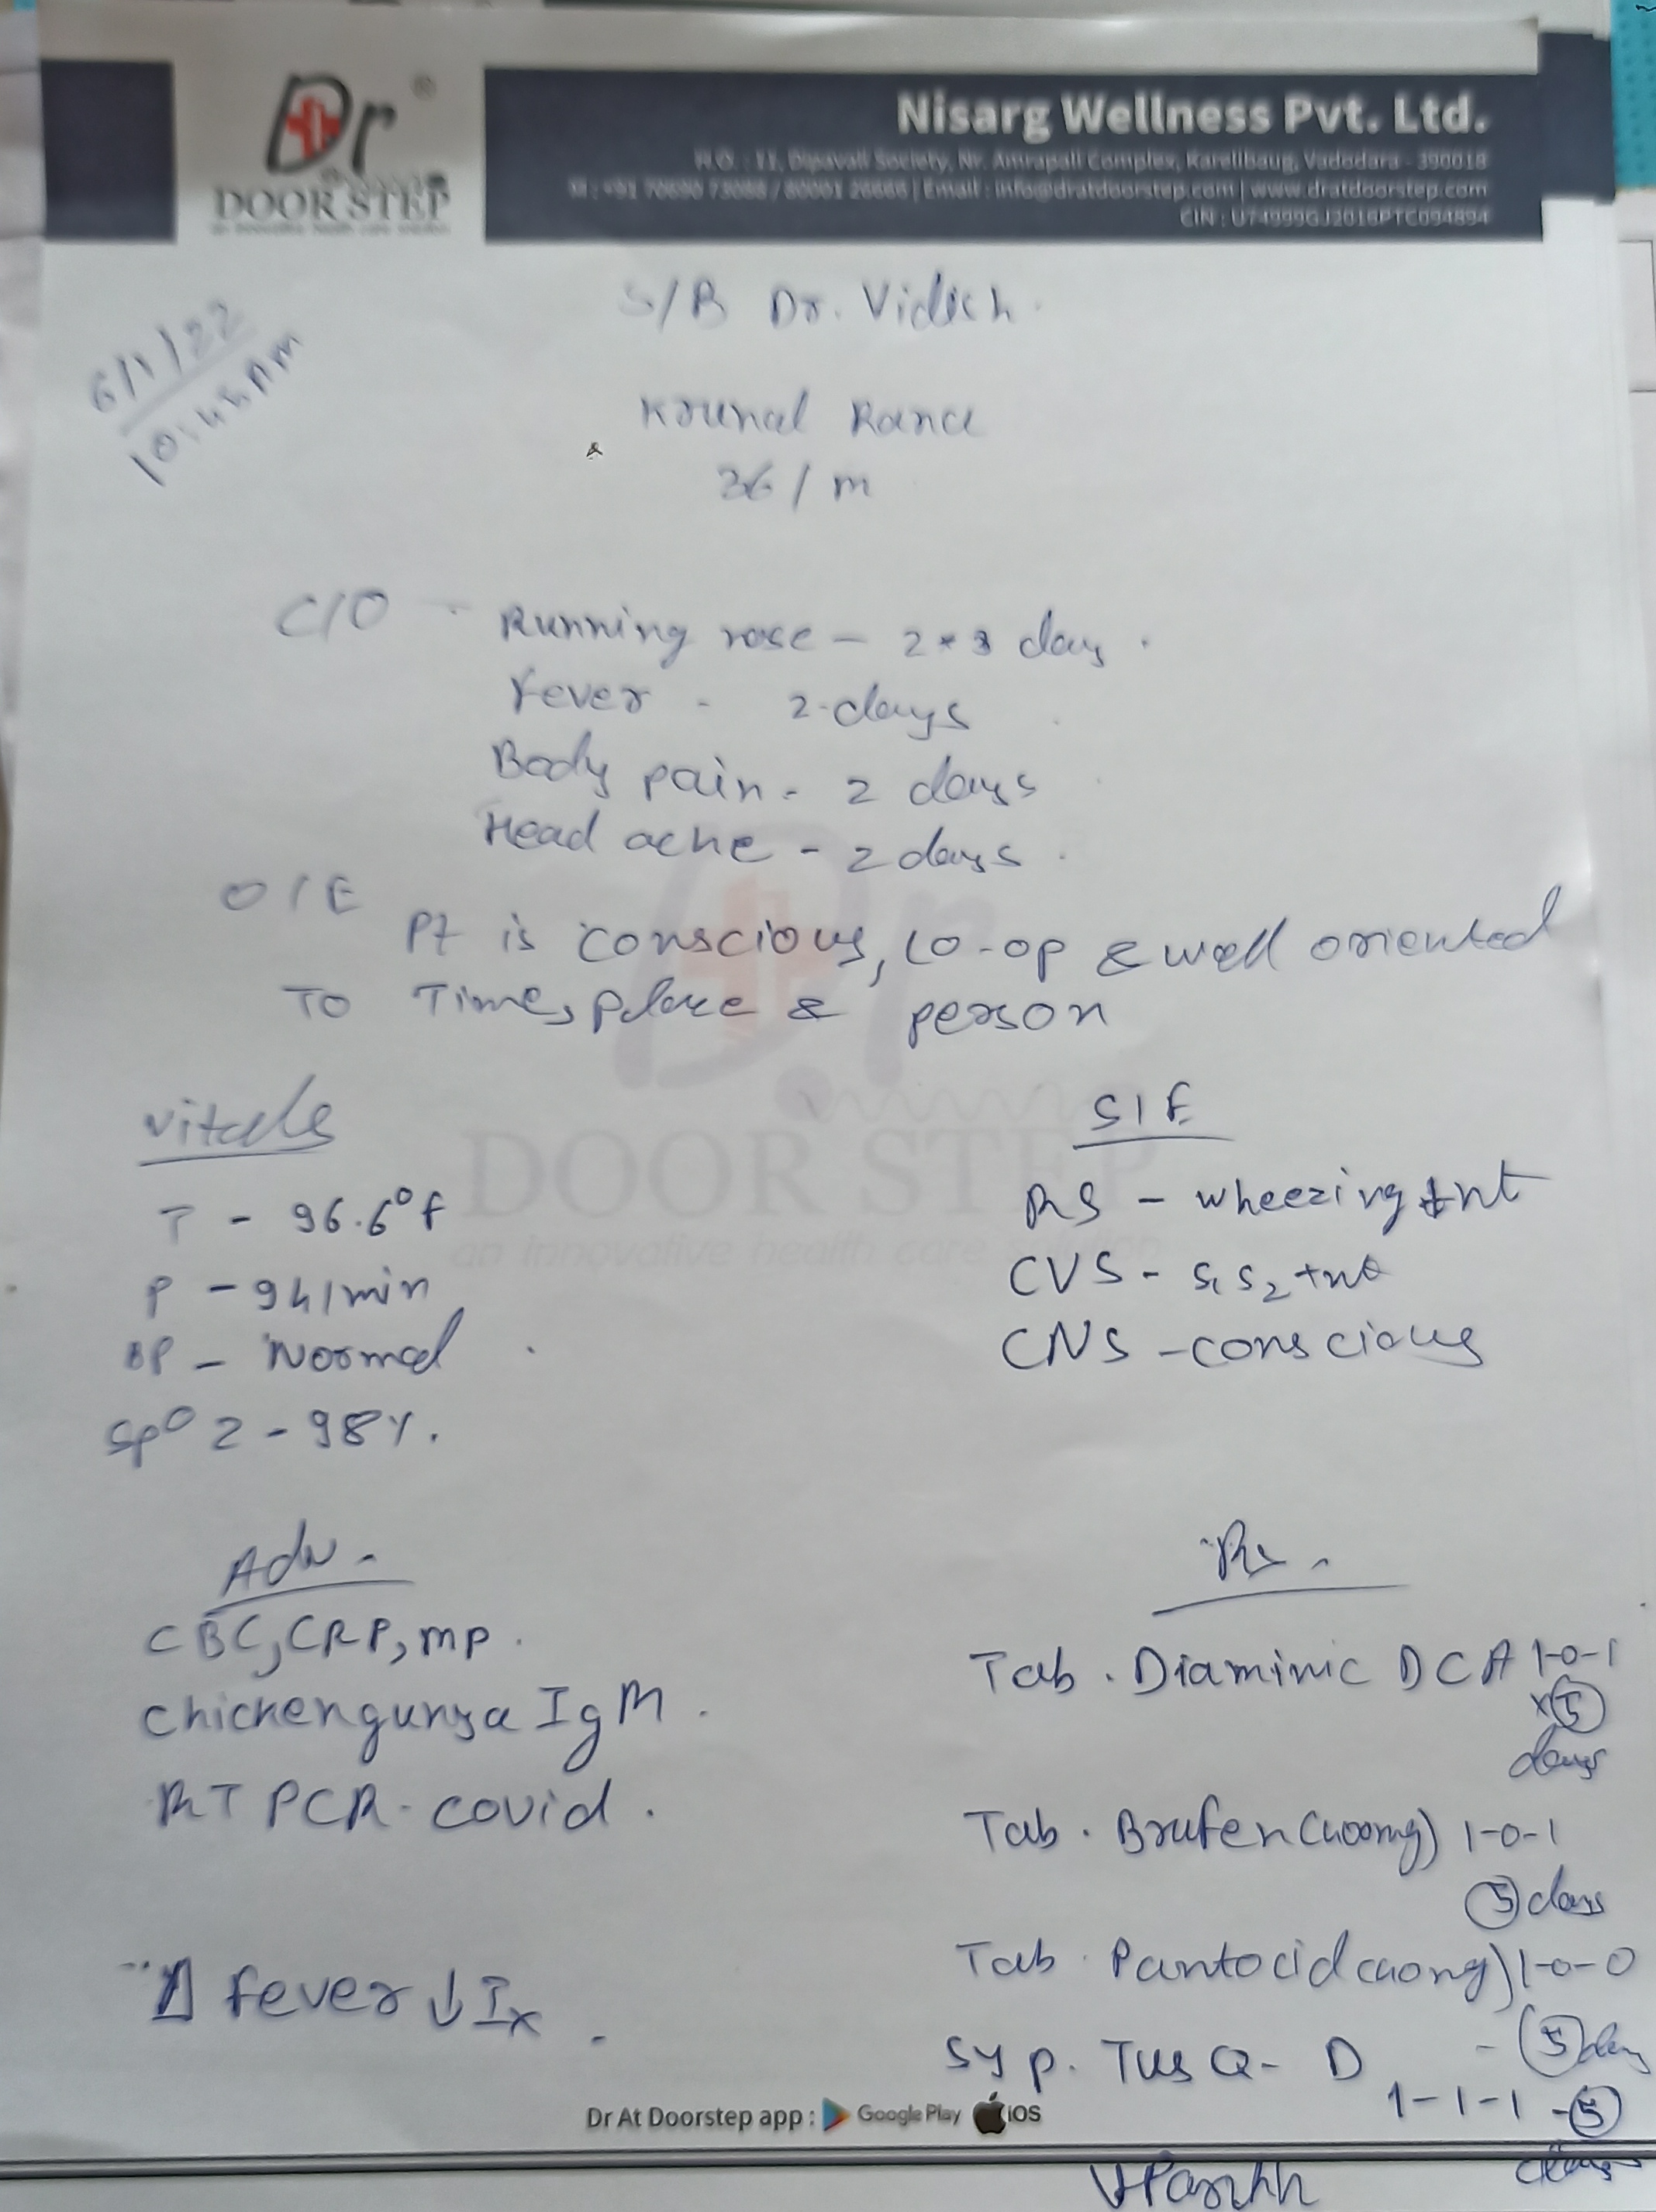 Dr ®
DOOR STEP
an innovative health care solution
Nisarg Wellness Pvt. Ltd.
H.O. : 11, Dipavali Society, Nr. Amrapali Complex, Karelibaug, Vadodara - 390018
Email : info@dratdoorstep.com | www.dratdoorstep.com
CIN : U74999GJ2016PTC094894
6/1/22
10:45AM
S/B Dr.
Krunal
36/m
C/O - Running nose - 2 days
Fever - 2-days
Body pain - 2 days
Head ache - 2 days
O/E
Pt is conscious, co-op & well oriented
To Time, place & person
Vitals
T - 96.6°f
P - 94/min
BP - Normal
SpO2 - 98%.
S/E
RS - wheezing +nt
CVS - S1 S2 +nt
CNS - conscious
Adv -
CBC, CRP, mp.
Chickengunya IgM.
RT PCR - covid.
fever ↓ Ix
Rx -
Tab. Diaminic DCA 1-0-1
x 5
days
Tab. Brufen (400mg) 1-0-1
days
Tab. Pantocid (40mg) 1-0-0
- (5) day
Syp. Tus Q - D
1-1-1 - 5
days
Dr
DOOR STEP
an innovative health care solution
Dr At Doorstep app : Google Play iOS